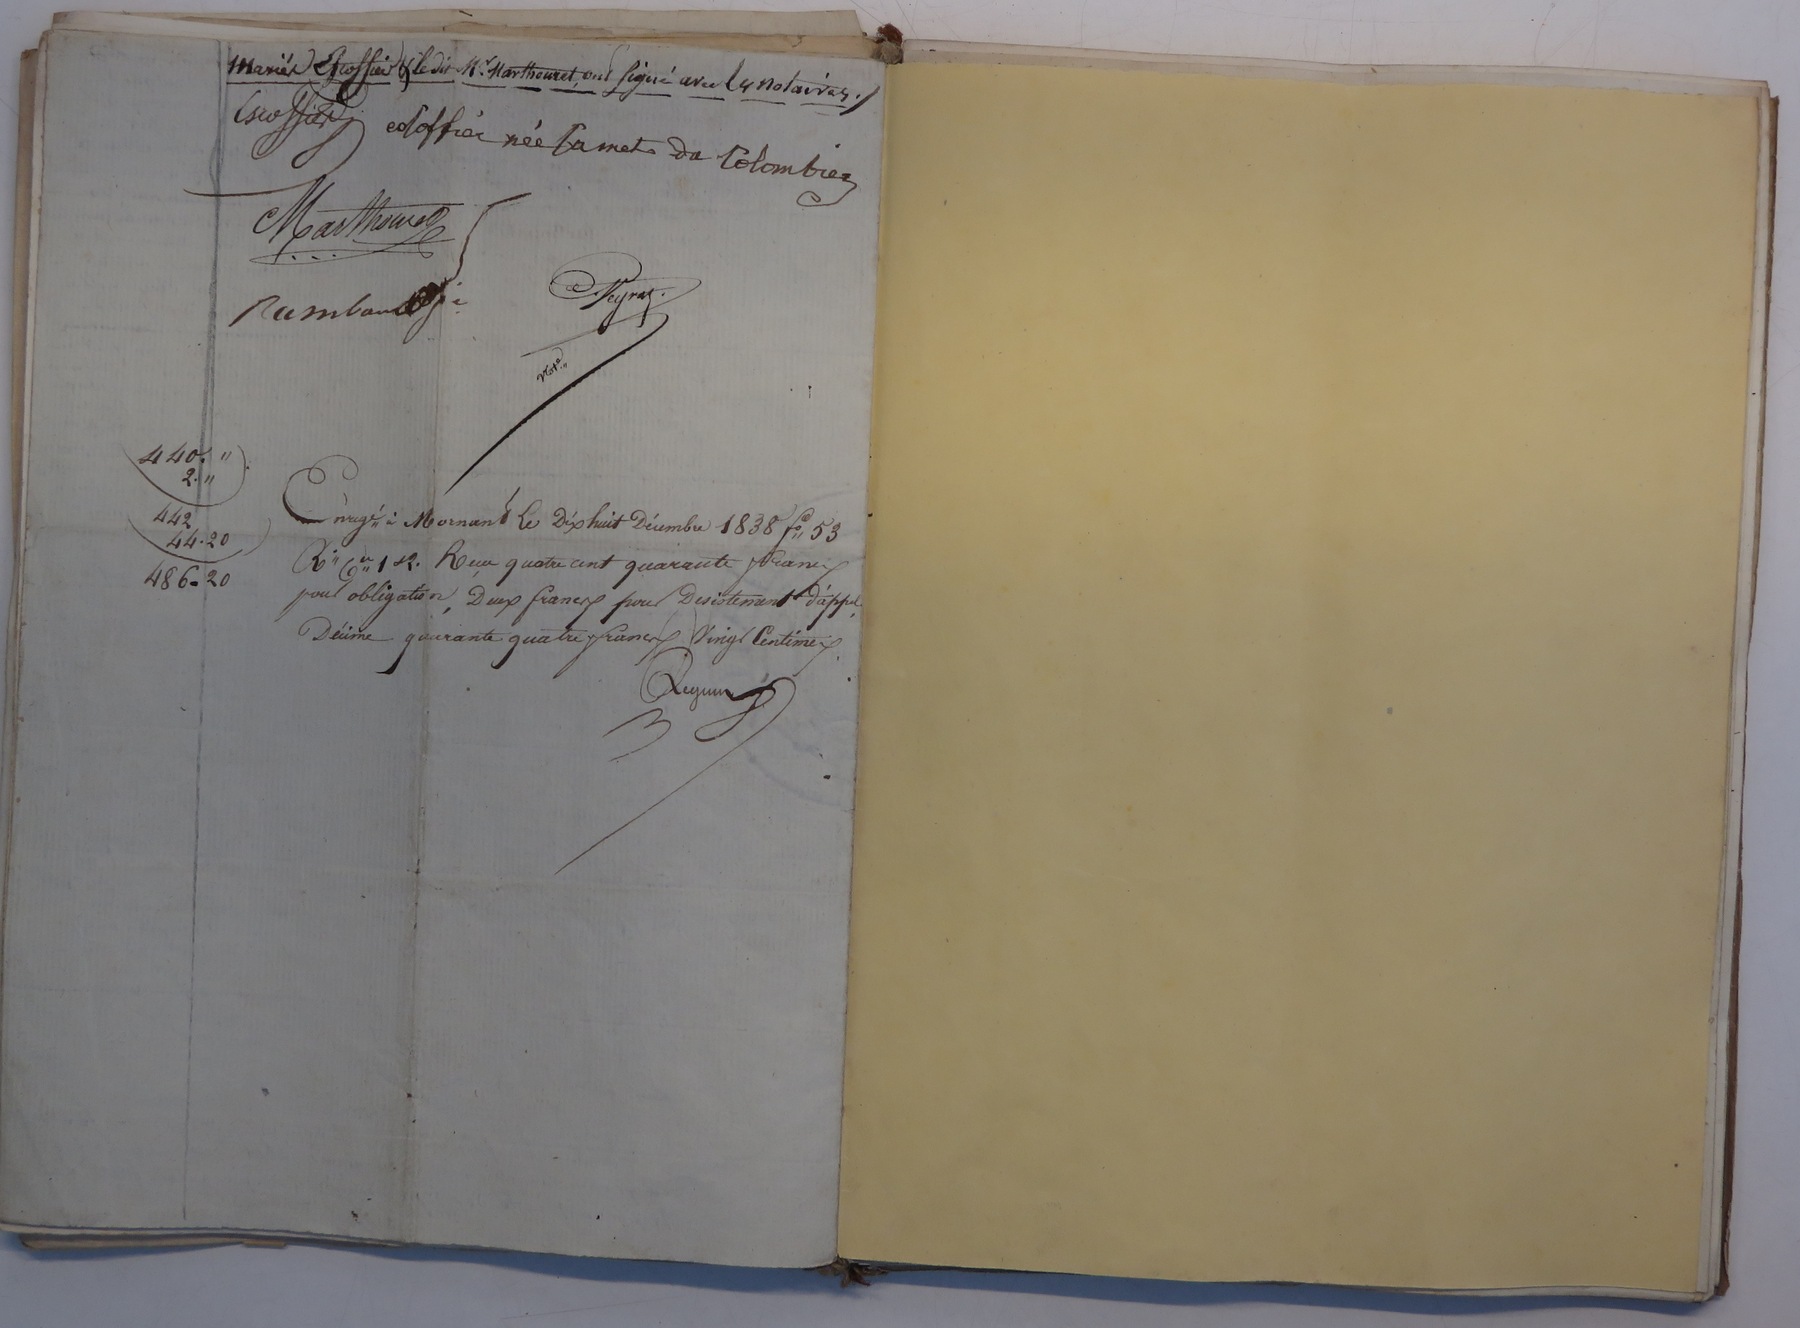 Mariés Escoffier & le dit Mr. Marthouret ont signé avec les notaires./.
Escoffier
escoffier née Camet du Colombier
Marthouret
Rambaud
Peyrat
Not.re
440. "
2. "
442
44.20
486.20
Enregé à Mornant le Dix huit Décembre 1838 fo 53
Ro Ces 1 & 2. Reçu quatre cent quarante francs
pour obligation, Deux francs pour Desistement d'appel,
Décime quarante quatre francs Vingt Centimes